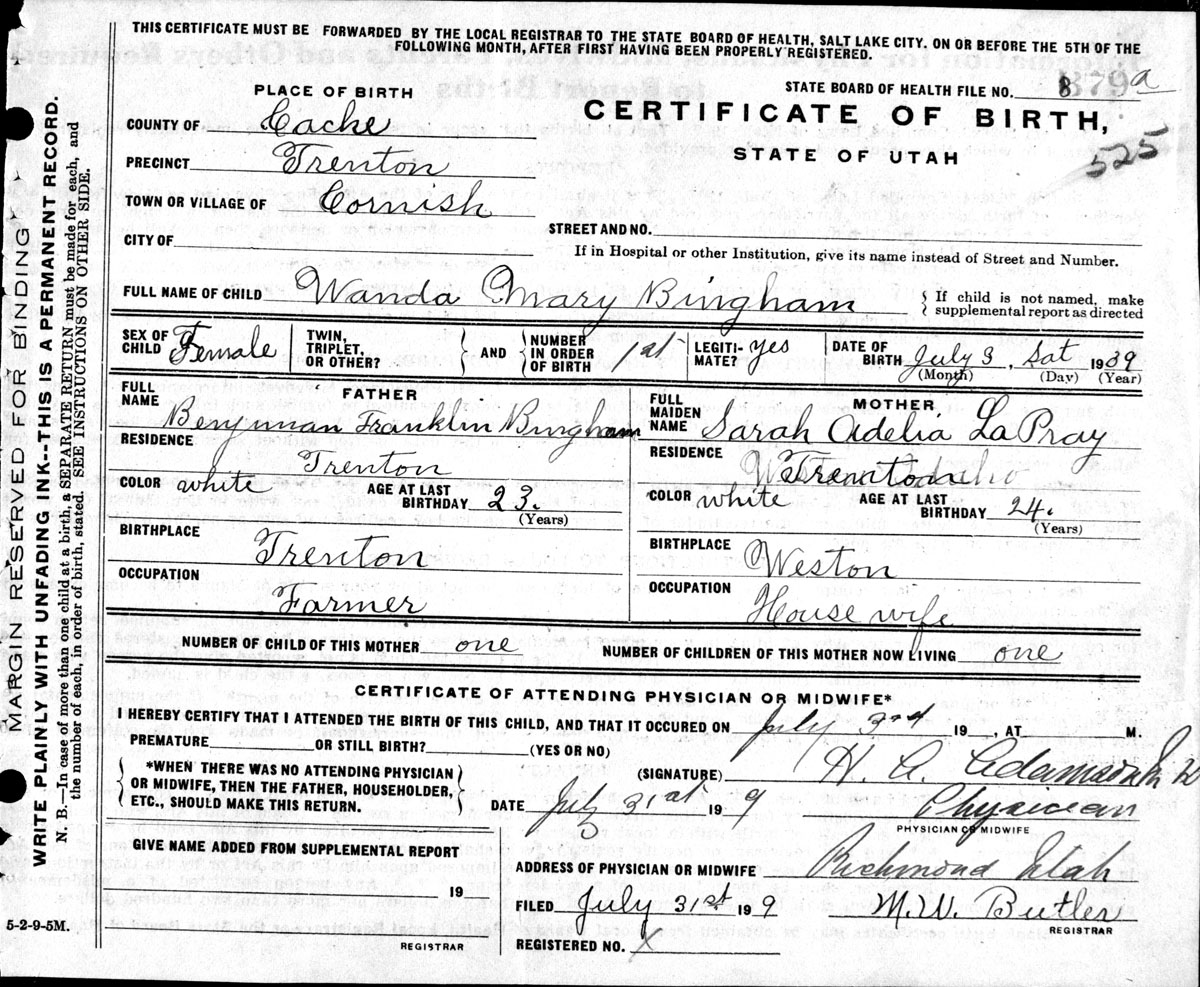 THIS CERTIFICATE MUST BE FORWARDED BY THE LOCAL REGISTRAR TO THE STATE BOARD OF HEALTH, SALT LAKE CITY. ON OR BEFORE THE 5TH OF THE
FOLLOWING MONTH, AFTER FIRST HAVING BEEN PROPERLY REGISTERED.
MARGIN RESERVED FOR BINDING
WRITE PLAINLY WITH UNFADING INK--THIS IS A PERMANENT RECORD.
N. B.—In case of more than one child at a birth, a SEPARATE RETURN must be made for each, and
the number of each, in order of birth, stated. SEE INSTRUCTIONS ON OTHER SIDE.
PLACE OF BIRTH
STATE BOARD OF HEALTH FILE NO. 879a
COUNTY OF Cache
CERTIFICATE OF BIRTH,
525
PRECINCT Trenton
STATE OF UTAH
TOWN OR VILLAGE OF Cornish
STREET AND NO.
CITY OF
If in Hospital or other Institution, give its name instead of Street and Number.
FULL NAME OF CHILD Wanda Mary Bingham { If child is not named, make
supplemental report as directed
SEX OF CHILD Female
TWIN, TRIPLET, OR OTHER? } AND { NUMBER IN ORDER OF BIRTH 1st
LEGITI- MATE? yes
DATE OF BIRTH July 3, Sat 1909
(Month) (Day) (Year)
FATHER
FULL NAME Benjiman Franklin Bingham
MOTHER
FULL MAIDEN NAME Sarah Adelia LaPray
RESIDENCE Trenton
RESIDENCE Trenton
COLOR white AGE AT LAST BIRTHDAY 23. (Years)
COLOR white AGE AT LAST BIRTHDAY 24. (Years)
BIRTHPLACE Trenton
BIRTHPLACE Weston
OCCUPATION Farmer
OCCUPATION House wife
NUMBER OF CHILD OF THIS MOTHER one
NUMBER OF CHILDREN OF THIS MOTHER NOW LIVING one
CERTIFICATE OF ATTENDING PHYSICIAN OR MIDWIFE*
I HEREBY CERTIFY THAT I ATTENDED THE BIRTH OF THIS CHILD, AND THAT IT OCCURED ON July 3rd 19 , AT M.
PREMATURE OR STILL BIRTH? (YES OR NO)
{ *WHEN THERE WAS NO ATTENDING PHYSICIAN
OR MIDWIFE, THEN THE FATHER, HOUSEHOLDER,
ETC., SHOULD MAKE THIS RETURN. }
(SIGNATURE) H. A. Adamson
DATE July 31st 19 9
Physician
PHYSICIAN OR MIDWIFE
GIVE NAME ADDED FROM SUPPLEMENTAL REPORT
19
REGISTRAR
ADDRESS OF PHYSICIAN OR MIDWIFE Richmond Utah
FILED July 31st 19 9 M. W. Butler
REGISTRAR
REGISTERED NO. X
5-2-9-5M.